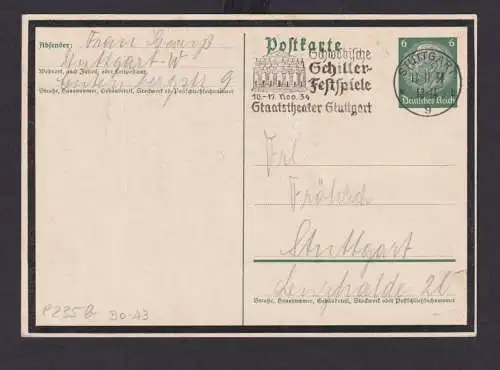 Absender: Frau
Stuttgart-W
Wohnort, auch Zustell- oder Leitpostamt
9
Straße, Hausnummer, Gebäudeteil, Stockwerk od. Postschließfachnummer
Postkarte
Schwäbische
Schiller-
Festspiele
10.-17. Nov. 34
Staatstheater Stuttgart
STUTTGART
9
6 6
Deutsches Reich
Frl
Fröhlich
Stuttgart
Lenzhalde
Straße, Hausnummer, Gebäudeteil, Stockwerk oder Postschließfachnummer
P235B Bo.43